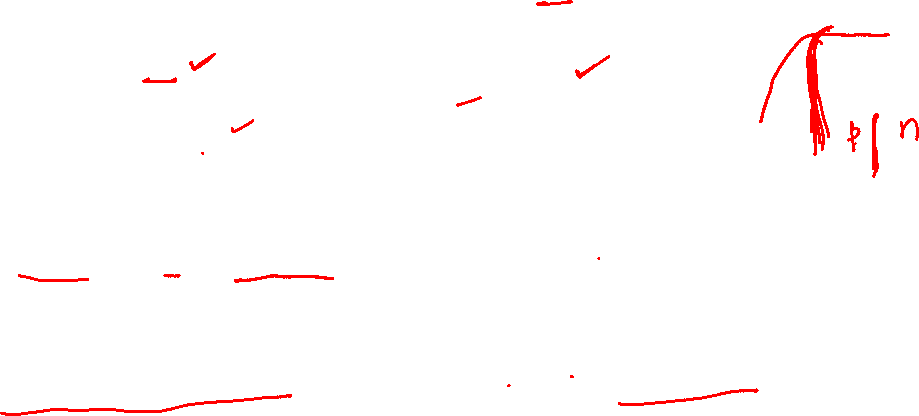 p | n